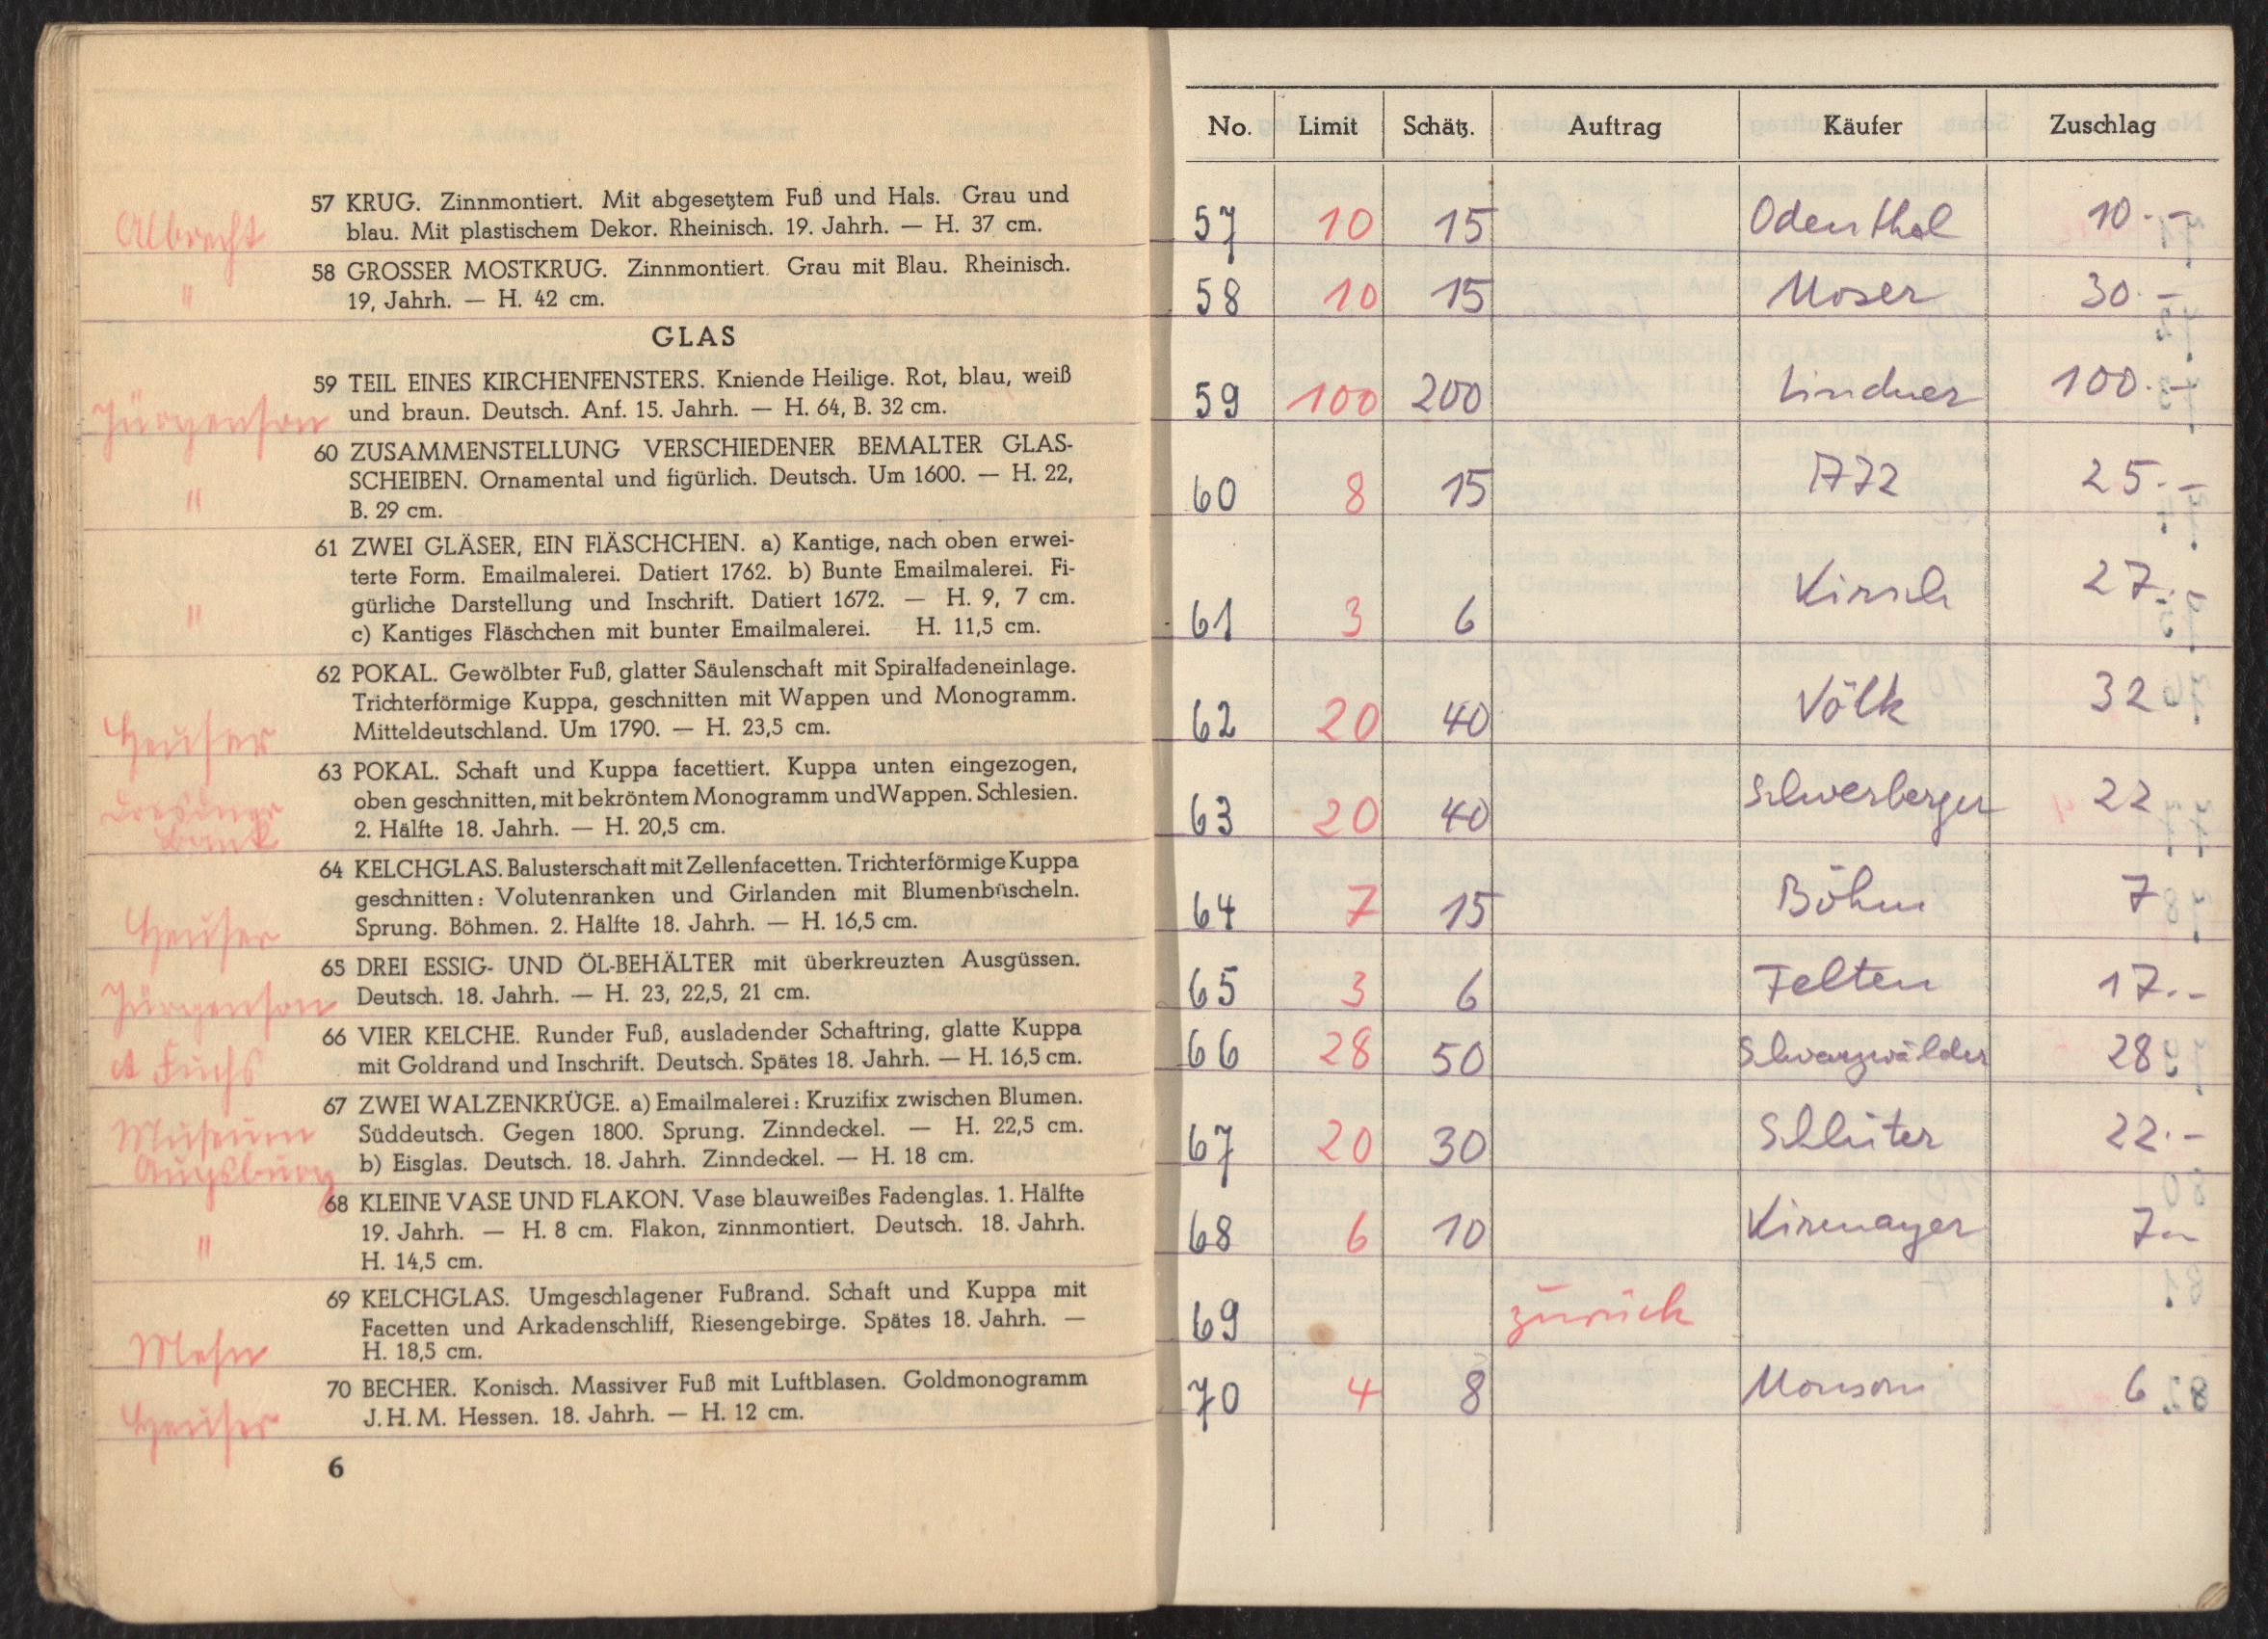 57 KRUG. Zinnmontiert. Mit abgesetztem Fuß und Hals. Grau und
Albrecht blau. Mit plastischem Dekor. Rheinisch. 19. Jahrh. — H. 37 cm.
58 GROSSER MOSTKRUG. Zinnmontiert. Grau mit Blau. Rheinisch.
" 19, Jahrh. — H. 42 cm.
GLAS
59 TEIL EINES KIRCHENFENSTERS. Kniende Heilige. Rot, blau, weiß
Jürgenson und braun. Deutsch. Anf. 15. Jahrh. — H. 64, B. 32 cm.
60 ZUSAMMENSTELLUNG VERSCHIEDENER BEMALTER GLAS-
SCHEIBEN. Ornamental und figürlich. Deutsch. Um 1600. — H. 22,
" B. 29 cm.
61 ZWEI GLÄSER, EIN FlÄSCHCHEN. a) Kantige, nach oben erwei-
terte Form. Emailmalerei. Datiert 1762. b) Bunte Emailmalerei. Fi-
" gürliche Darstellung und Inschrift. Datiert 1672. — H. 9, 7 cm.
c) Kantiges Fläschchen mit bunter Emailmalerei. H. 11,5 cm.
62 POKAL. Gewölbter Fuß, glatter Säulenschaft mit Spiralfadeneinlage.
Trichterförmige Kuppa, geschnitten mit Wappen und Monogramm.
Heuser Mitteldeutschland. Um 1790. — H. 23,5 cm.
63 POKAL. Schaft und Kuppa facettiert. Kuppa unten eingezogen,
Dresdner oben geschnitten, mit bekröntem Monogramm und Wappen. Schlesien.
Bank 2. Hälfte 18. Jahrh. — H. 20,5 cm.
64 KELCHGLAS. Balusterschaft mit Zellenfacetten. Trichterförmige Kuppa
geschnitten: Volutenranken und Girlanden mit Blumenbüscheln.
Heuser Sprung. Böhmen. 2. Hälfte 18. Jahrh. — H. 16,5 cm.
65 DREI ESSIG- UND ÖL-BEHÄLTER mit überkreuzten Ausgüssen.
Jürgenson Deutsch. 18. Jahrh. — H. 23, 22,5, 21 cm.
66 VIER KELCHE. Runder Fuß, ausladender Schaftring, glatte Kuppa
Fuchs mit Goldrand und Inschrift. Deutsch. Spätes 18. Jahrh. — H. 16,5 cm.
67 ZWEI WALZENKRÜGE. a) Emailmalerei: Kruzifix zwischen Blumen.
Museum Süddeutsch. Gegen 1800. Sprung. Zinndeckel. — H. 22,5 cm.
Augsburg b) Eisglas. Deutsch. 18. Jahrh. Zinndeckel. — H. 18 cm.
68 KLEINE VASE UND FLAKON. Vase blauweißes Fadenglas. 1. Hälfte
" 19. Jahrh. — H. 8 cm. Flakon, zinnmontiert. Deutsch. 18. Jahrh.
H. 14,5 cm.
69 KELCHGLAS. Umgeschlagener Fußrand. Schaft und Kuppa mit
Facetten und Arkadenschliff, Riesengebirge. Spätes 18. Jahrh. —
H. 18,5 cm.
70 BECHER. Konisch. Massiver Fuß mit Luftblasen. Goldmonogramm
Heuser J. H. M. Hessen. 18. Jahrh. — H. 12 cm.
6
No. Limit Schätz. Auftrag Käufer Zuschlag
57 10 15 Odenthal 10.–
58 10 15 Moser 30.–
59 100 200 Lindner 100.–
60 8 15 1772 25.–
61 3 6 Kirsch 27.–
62 20 40 Völk 32
63 20 40 Schwerberger 22
64 7 15 Böhm 7
65 3 6 Felten 17.–
66 28 50 Schwarzwälder 28
67 20 30 Schlüter 22.–
68 6 10 Kirmayer 7.–
69 zurück
70 4 8 Monsom 6